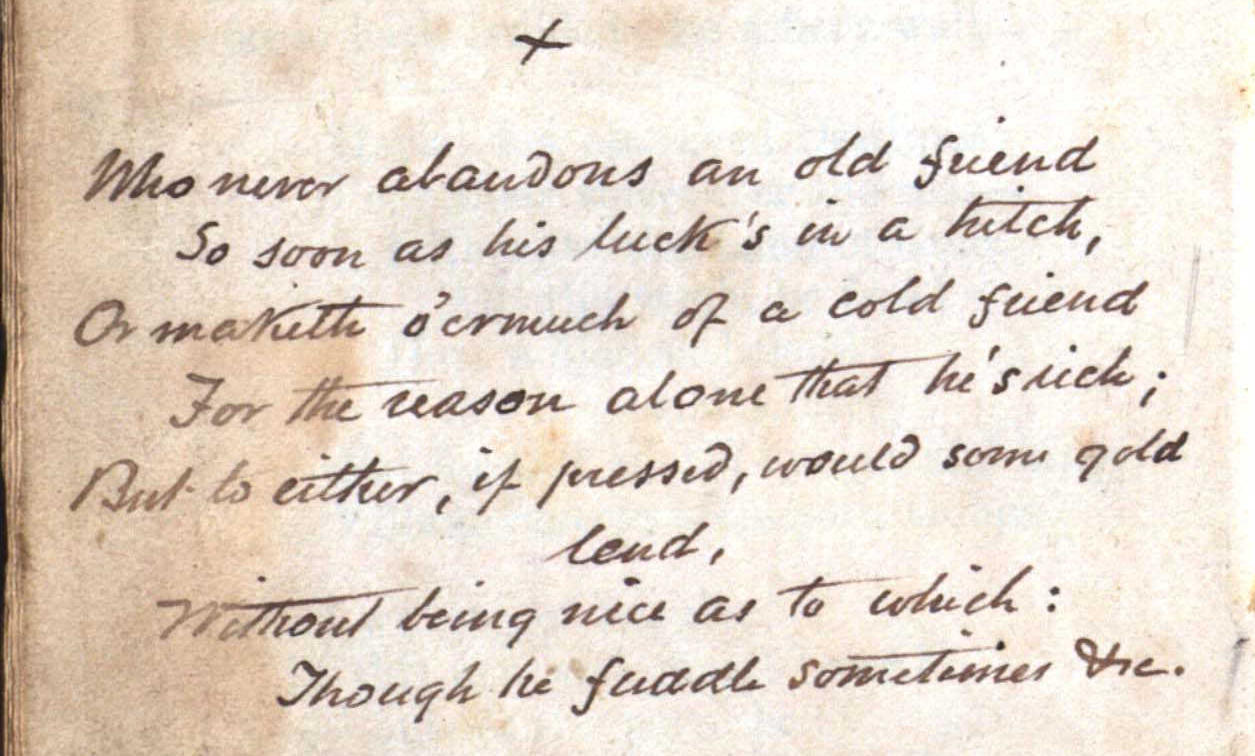 x
Who never abandons an old friend
So soon as his luck's in a hitch,
Or maketh o'ermuch of a cold friend
For the reason alone that he's rich;
But to either, if pressed, would some gold
lend,
Without being nice as to which:
Though he fuddle sometimes &c.